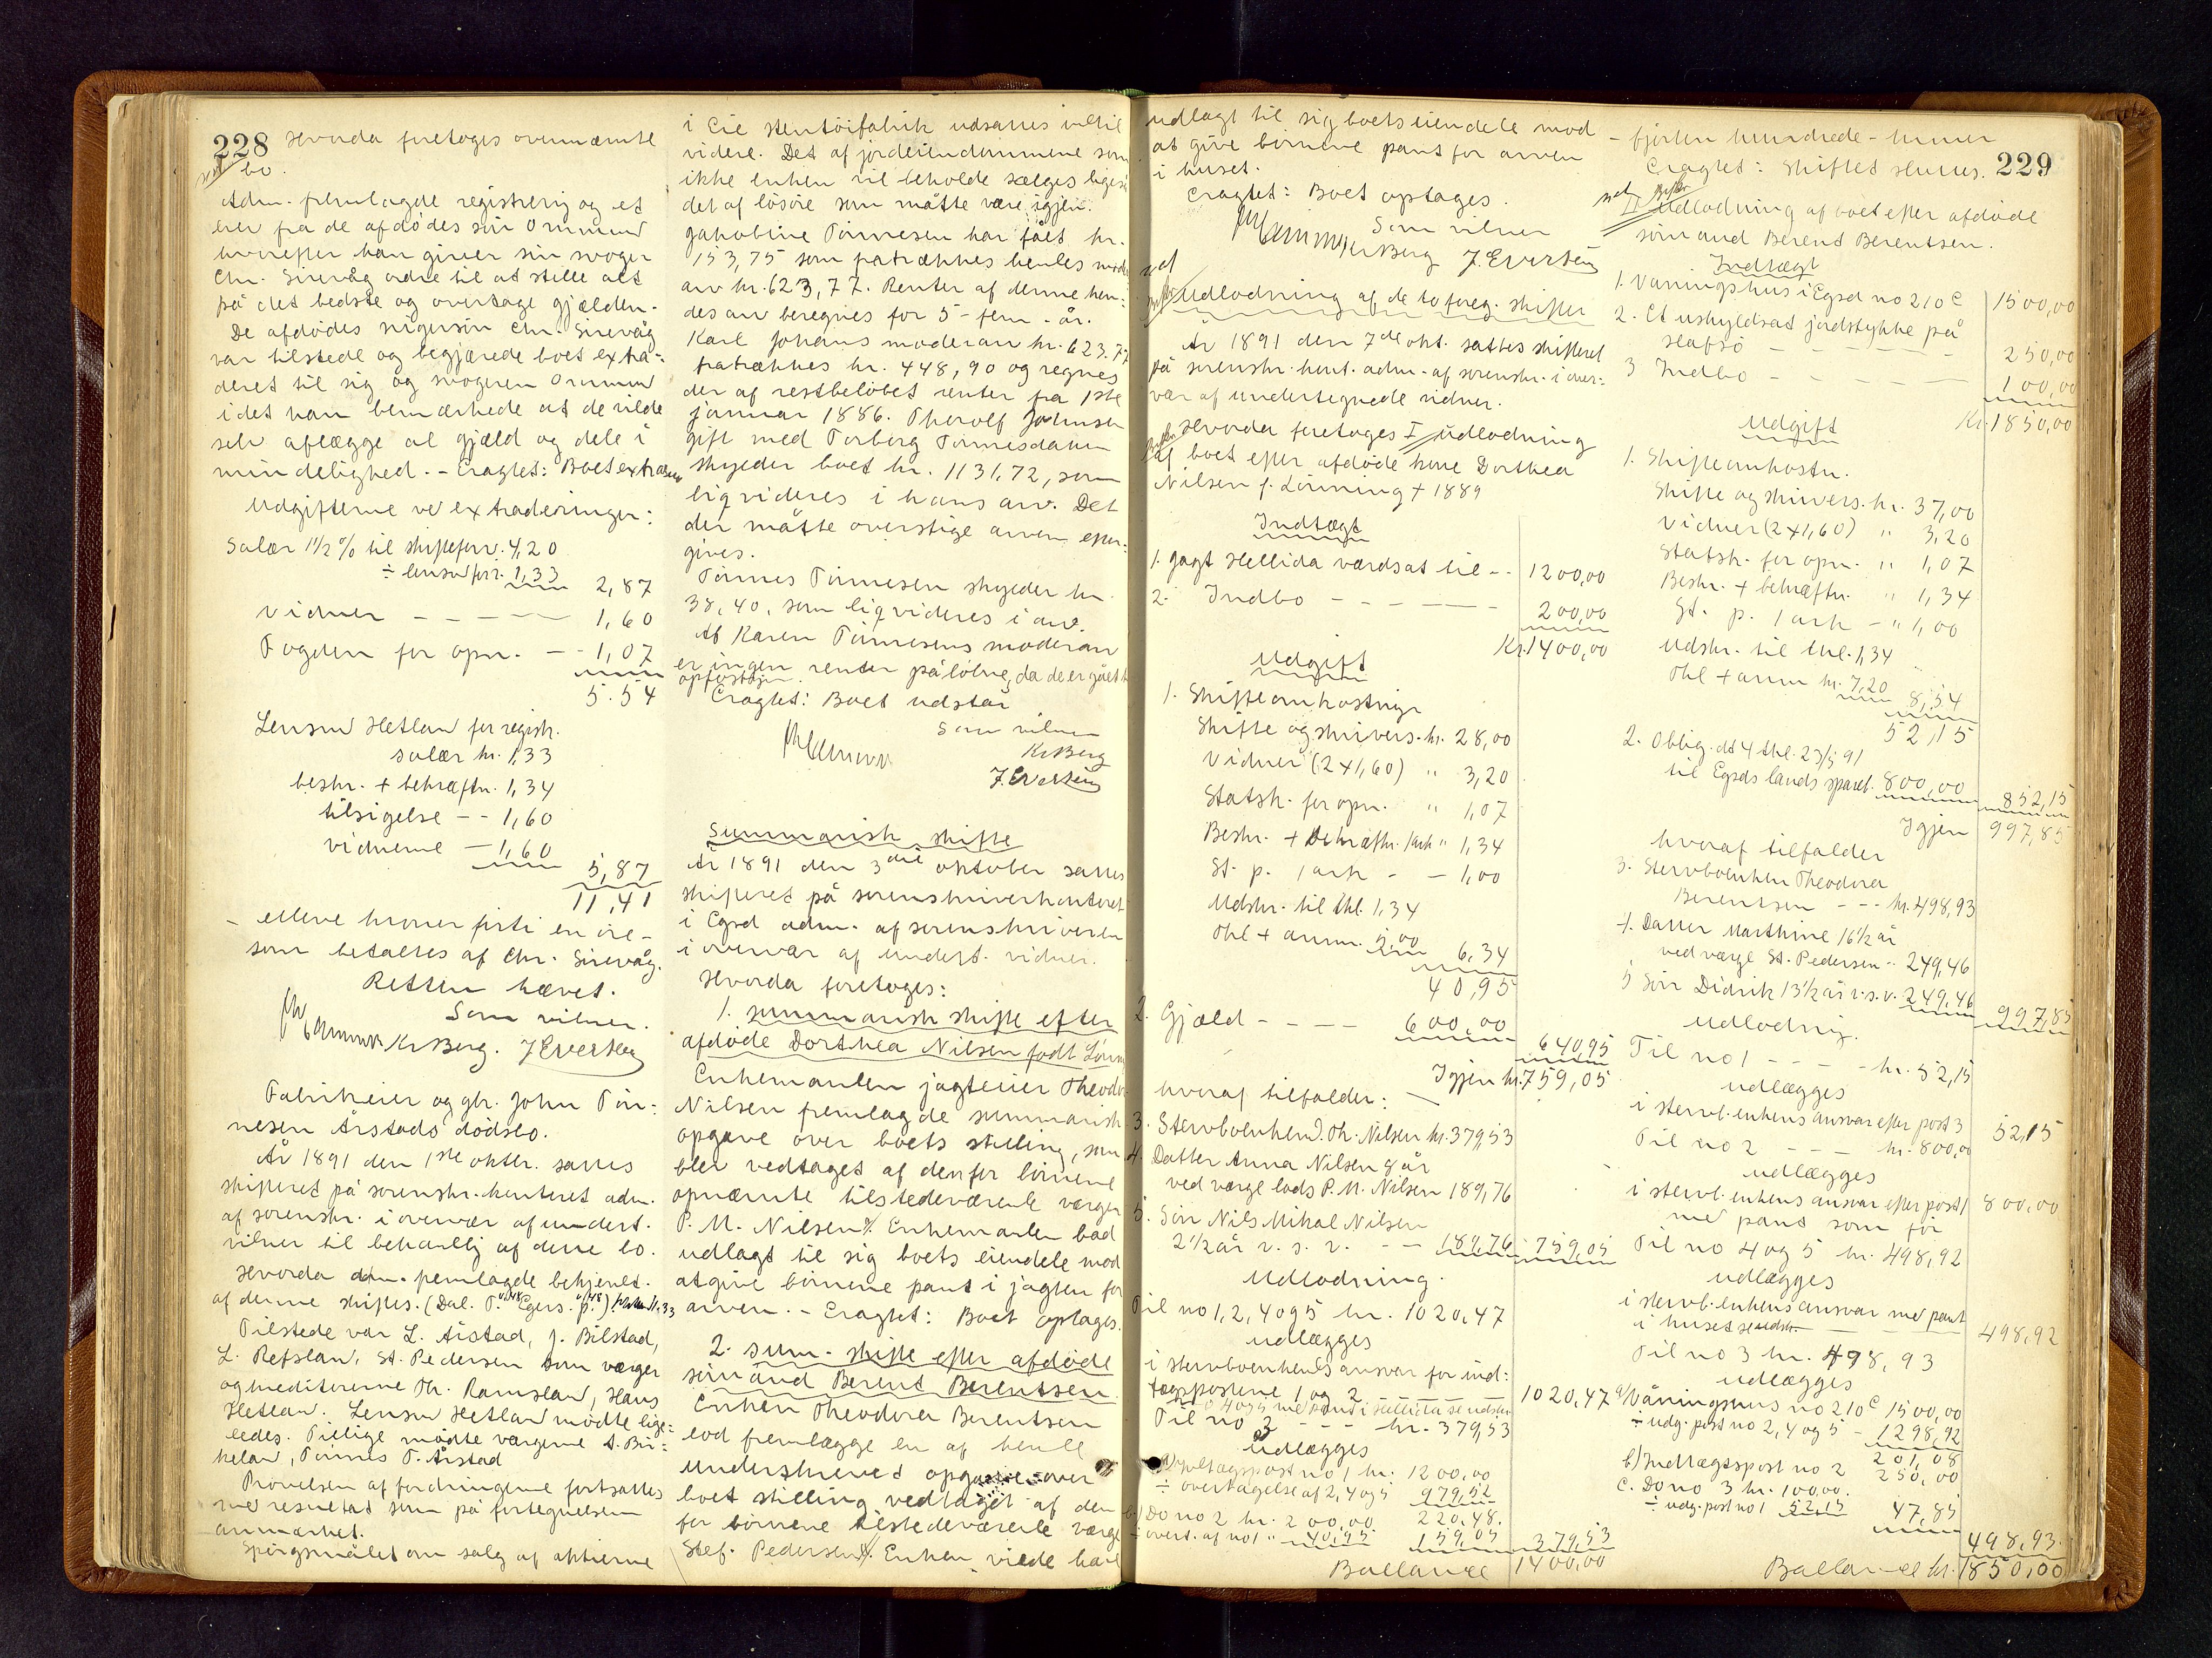 228 Hvorda foretoges ovennævnte
bo.
Adm. fremlagde registrering og et
brev fra de afdødes søn Ommund
hvorefter han giver sin svoger
Chr. Sirevåg ordre til at stille alt
på det bedste og overtage gjælden.
De afdødes svigersøn Chr. Sirevåg
var tilstede og begjærede boet extra-
deret til sig og svogeren Ommund
idet han bemærkede at de vilde
selv aflægge al gjæld og dele i
mindelighed. - Eragtet: Boet extraderes
Udgifterne ve extraderingen:
Salær 1 1/2 % til skifteforv. 4,20
÷ lensm forr. 1,33 2,87
vidner - - - - 1,60
Fogden for opn. - - 1,07
5.54
Lensm Hetland for registr.
salær kr. 1,33
beskr. + bekræftn. 1,34
tilsigelse - - 1,60
vidnerne - 1,60
5,87
11,41
- elleve kroner førti en øre -
som betaltes af Chr. Sirevåg.
Retten hævet.
Som vidner.
Kr Berg. J Evertsen
Fabrikeier og gbr. John Tøn-
nesen Årstads dødsbo.
År 1891 den 1ste oktbr. sattes
skifteret på sorenskr. kontoret adm.
af sorenskr. i overvær af undert.
vidner til behandlg af dette bo.
Hvorda adm. fremlagde bekjendt.
af denne skiftes. (Dal. T. Egers. p.)
Tilstede var L. Årstad, J. Bilstad,
L. Refsland, St. Pedersen som værger
og kreditorerne Th. Ramsland, Hans
Hetland. Lensm Hetland mødte lige-
ledes. Tillige mødte værgerne T. Bir-
keland, Tønnes T. Årstad
Prøvelsen af fordringerne fortsattes
me resultat som på fortegnelsen
anmærket.
Spørgsmålet om salg af aktierne
i Cie stentøifabrik udsattes indtil
videre. Det af jordeiendommene som
ikke enken vil beholde sælges ligeså
det af løsøre som måtte være igjen.
Jakobine Tønnesen har fået kr.
153,75 som fratrækkes hendes moder
arv kr. 623,77. Renter af denne hen-
des arv beregnes for 5 - fem - år.
Karl Johans moderarv kr. 623.77
fratrækkes kr. 448,90 og regnes
der af restbeløbet renter fra 1ste
januar 1886. Therolf Johnsen
gift med Torborg Tønnesdatter
skylder boet kr. 1131,72, som
liqvideres i hans arv. Det
der måtte overstige arven efter-
gives.
Tønnes Tønnesen skylder kr.
38,40, som liqvideres i arv.
Af Karen Tønnesens moderarv
er ingen renter påløbne, da de er gået til
opfostrin.
Eragtet: Boet udstår
Som vidner
Kr Berg
J. Evertsen
Summarisk skifte
År 1891 den 3die oktober sattes
skifteret på sorenskriverkontoret
i Egsd adm. af sorenskriveren
i overvær af undert. vidner.
Hvorda foretoges:
1. summarisk skifte efter
afdøde Dorthea Nilsen født Lønning
Enkemanden jagteier Theodor
Nilsen fremlagde summarisk
opgave over boets stilling, som
blev vedtaget af den for børnene
opnævnte tilstedeværende værger
P. M. Nilsen. Enkemanden bad
udlagt til sig boets eiendele mod
at give børnene pant i jagten for
arven. - Eragtet: Boet optages.
2. sum. skifte efter afdøde
sømand Berent Berentsen
Enken Theodora Berentsen
lod fremlægge en af hende
underskrevet opgave over
boets stilling vedtaget af den
for børnene tilstedeværende værge
Stef. Pedersen. Enken vilde have
udlagt til sig boets eiendele mod
at give børnene pant for arven
i huset.
Eragtet: Boet optages.
Som vidner
Kr Berg J. Evertsen
Udlodning af de to foreg. skifter
År 1891 den 7de okt. sattes skifteret
på sorenskr. kont. adm. af sorenskr. i over-
vær af undertegnede vidner.
Hvorda foretages I udlodning
af boet efter afdøde kone Dorthea
Nilsen f. Lønning † 1889
Indtægt
1. Jagt Hellida værdsat til - - 1200,00
2. Indbo - - - - - - 200,00
Kr. 1400,00
Udgift
1. Skifteomkostnigr
Skifte og skrivers. kr. 28,00
Vidner (2x1,60) " 3,20
Statsk. for opn. " 1,07
Beskr. + bekræftn. 1 ark " 1,34
St. p. 1 ark - - 1,00
Udskr. til thl. 1,34
Thl + anm. 5,00 6,34
40,95
2. Gjæld - - - - 600,00
640,95
Igjen kr. 759,05
hvoraf tilfalder:
3. Stervboenkem. Th. Nilsen kr. 379,53
4. Datter Anna Nilsen 8 år
ved værge lods P. M. Nilsen 189,76
5. Søn Nils Mikal Nilsen
2 1/2 år v. s. v. - - 189,76 759,05
Udlodning.
Til no 1, 2, 4 og 5 kr. 1020,47
udlægges
i stervboenkems ansvar for ind-
tægtsposterne 1 og 2 - - - - 1020,47
4 og 5 me pant i Hellida se udskr
Til no 3 - - - kr. 379,53
udlægges
a) Indtægtspost no 1 kr. 1200,00
÷ overtagelse af 2, 4 og 5 979,52
220,48.
b) Do no 2 kr. 200,00
÷ overt. af no 1 " 40,95 159,05 379,53
Ballance 1400,00
- fjorten hundrede - kroner
Eragtet: Skiftet sluttes. 229
II Udlodning af boet efter afdøde
sømand Berent Berentsen.
Indtægt
1. Våningshus i Egsd no 210 c 1500,00
2. Et uskyldsat jordstykke på
Hafsø - - - - - 250,00
3 Indbo - - - - - 100,00
Kr. 1850,00
Udgift
1. Skifteomkostn.
Skifte og skrivers. kr. 37,00
Vidner (2x1,60) " 3,20
Statsk. for opn. " 1,07
Beskr. + bekræftn. " 1,34
St. p. 1 ark - " 1,00
Udskr. til thl. 1,34
Thl + anm kr. 7,20 8,54
52,15
2. Oblig. dt 4 thl. 23/5 91
til Egsds lands spareb. 800,00 852,15
Igjen 997,85
hvoraf tilfalder
3. Stervboenken Theodora
Berentsen - - - kr. 498,93
4. Datter Marthine 16 1/2 år
ved værge St. Pedersen - 249,46
5 Søn Didrik 13 1/2 år v. s. v. 249,46 997,85
Udlodnig.
Til no 1 - - - kr. 52,15
udlægges
i stervb. enkens ansvar efter post 3 52,15
Til no 2 - - - kr. 800,00
udlægges
i stervb. enkens ansvar efter post 1 800,00
me pant som før
Til no 4 og 5 kr. 498,92
udlægges
i stervb. enkens ansvar me pant
i huset se udskr. - - - 498,92
Til no 3 kr. 498,93
udlægges
a) Våningshus no 210 c 1500,00
÷ udg. post no 2, 4 og 5 - 1298,92
201,08
b) Indtægtspost no 2 250,00
c. Do no 3 kr. 100,00.
÷ udg. post no 1 52,15 47,85
498,93.
Ballance kr. 1850,00